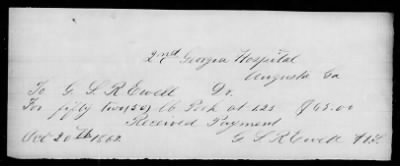 2nd Georgia Hospital
Augusta Ga
To G. L. R. Ewell Dr.
For fifty two (52) lb Pork at 1.25 $65.00
Received Payment
Oct 20th 1862 G L R Ewell